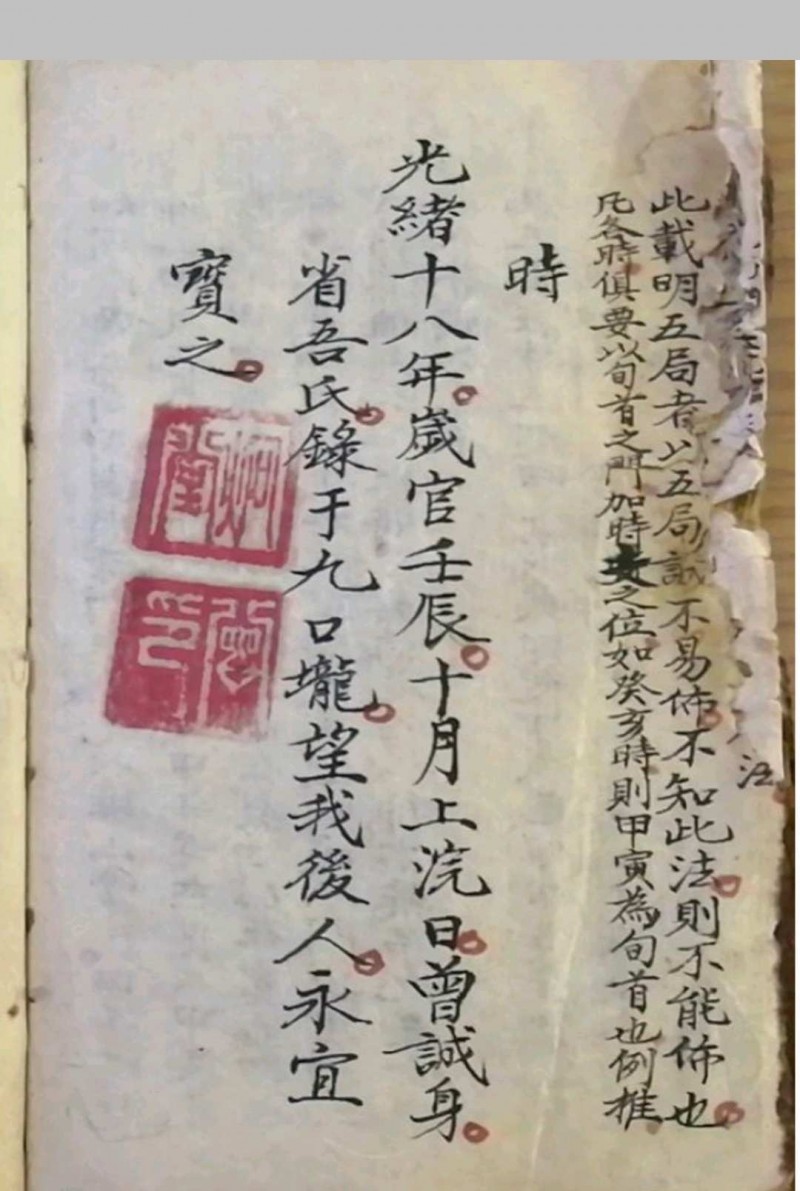 法
此載明五局者以五局誠不易佈不知此法則不能佈也
凡各時俱要以旬首之門加時之位如癸亥時則甲寅為旬首也例推
時
光緒十八年歲官壬辰十月上浣日曾誠身
省吾氏錄于九口壠望我後人永宜
寶之